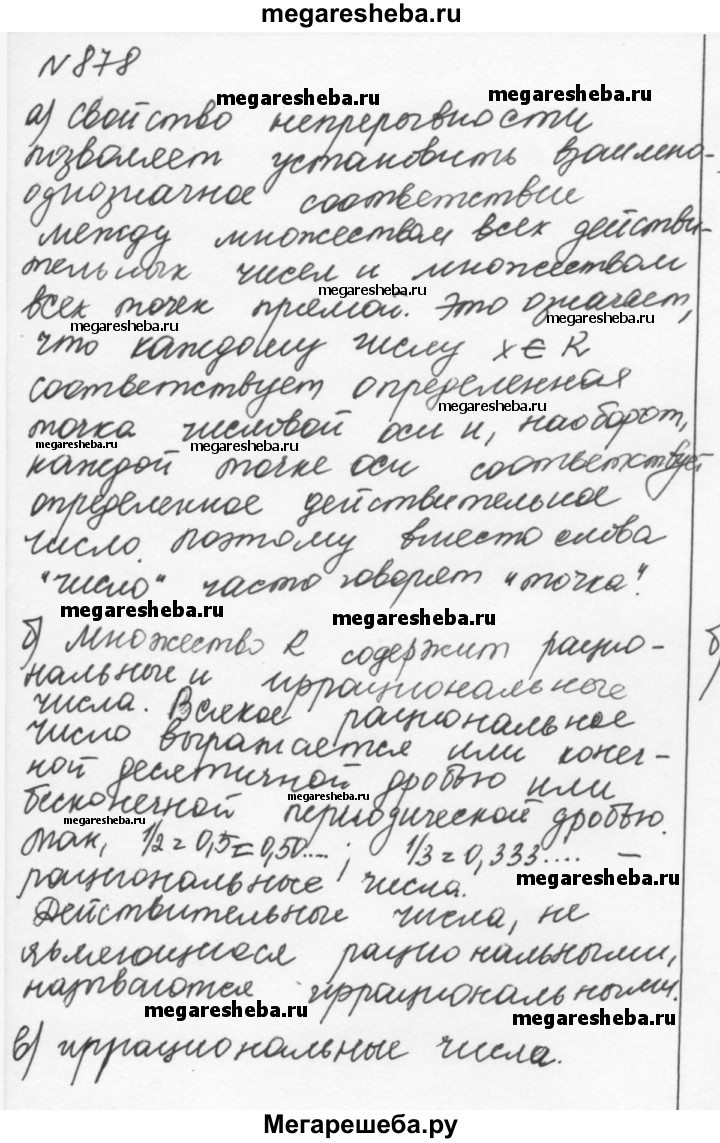 megaresheba.ru
№ 878
megaresheba.ru
megaresheba.ru
а) Свойство непрерывности
позволяет установить взаимно-
однозначное соответствие
между множеством всех действи-
тельных чисел и множеством
megaresheba.ru
всех точек прямой. Это означает,
megaresheba.ru
megaresheba.ru
что каждому числу x ∈ R
соответствует определенная
megaresheba.ru
точка числовой оси и, наоборот,
megaresheba.ru
megaresheba.ru
каждой точке оси соответствует
определенное действительное
число. поэтому вместо слова
"число" часто говорят "точка".
megaresheba.ru
megaresheba.ru
б) Множество R содержит рацио-
нальные и иррациональные
числа. Всякое рациональное
число выражается или конеч-
ной десятичной дробью или
megaresheba.ru
бесконечной периодической дробью.
megaresheba.ru
так, 1/2 = 0,5 = 0,50....; 1/3 = 0,333.... –
рациональные числа.
megaresheba.ru
Действительные числа, не
являющиеся рациональными,
называются иррациональными.
megaresheba.ru
megaresheba.ru
в) иррациональные числа.
Мегарешеба.ру